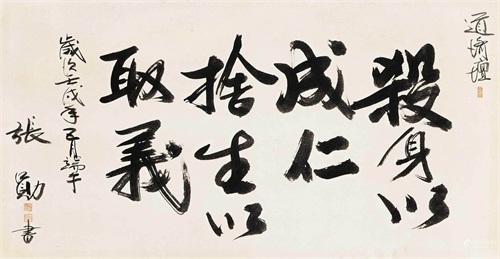 道渝壇
殺身以
成仁
捨生以
取義
歲次壬戌年五月端午
張勛書